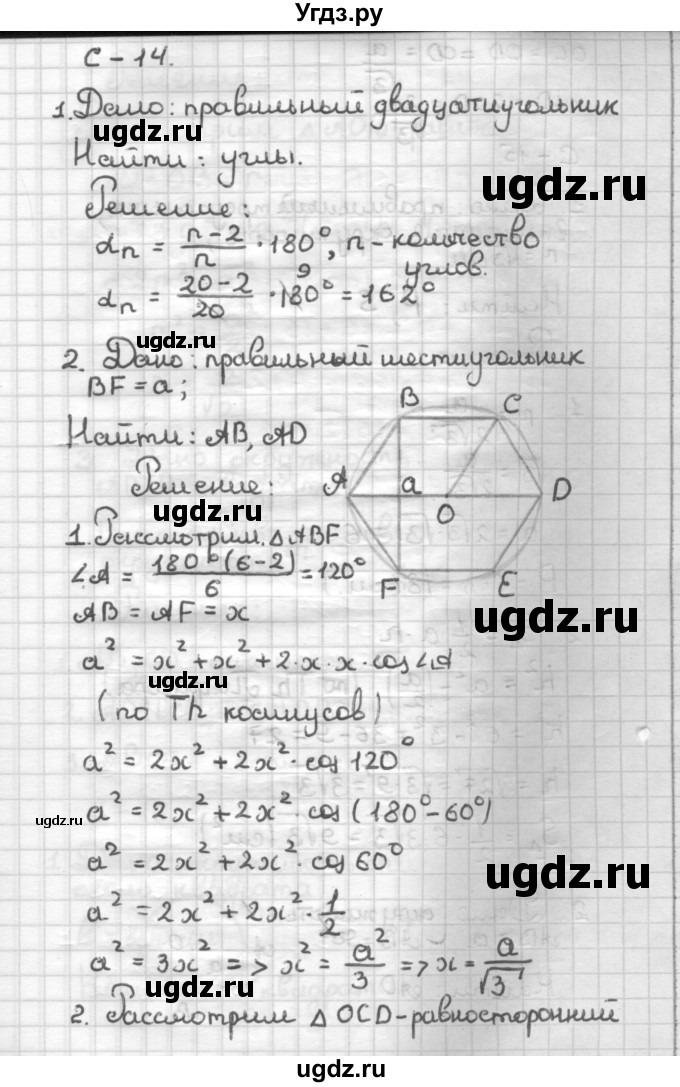 Угдз.ру
С - 14.
1. Дано: правильный двадцатиугольник
ugdz.ru
Найти: углы.
ugdz.ru
Решение:
αn = n-2/n · 180°, n - количество
углов.
αn = 20-2/20 · 180° 9 = 162°
ugdz.ru
2. Дано: правильный шестиугольник
BF = a;
B C
Найти: AB, AD
Решение: A a D
O
ugdz.ru
1. Рассмотрим △ABF
∠A = 180°(6-2)/6 = 120°
F E
ugdz.ru
AB = AF = x
a² = x² + x² + 2·x·x·cos∠A
ugdz.ru
(по Th косинусов)
a² = 2x² + 2x² · cos 120°
a² = 2x² + 2x² · cos (180° - 60°)
ugdz.ru
a² = 2x² + 2x² · cos 60°
ugdz.ru
a² = 2x² + 2x² · 1/2
a² = 3x² => x² = a²/3 => x = a/√3
ugdz.ru
2. Рассмотрим △ OCD - равносторонний
ugdz.ru